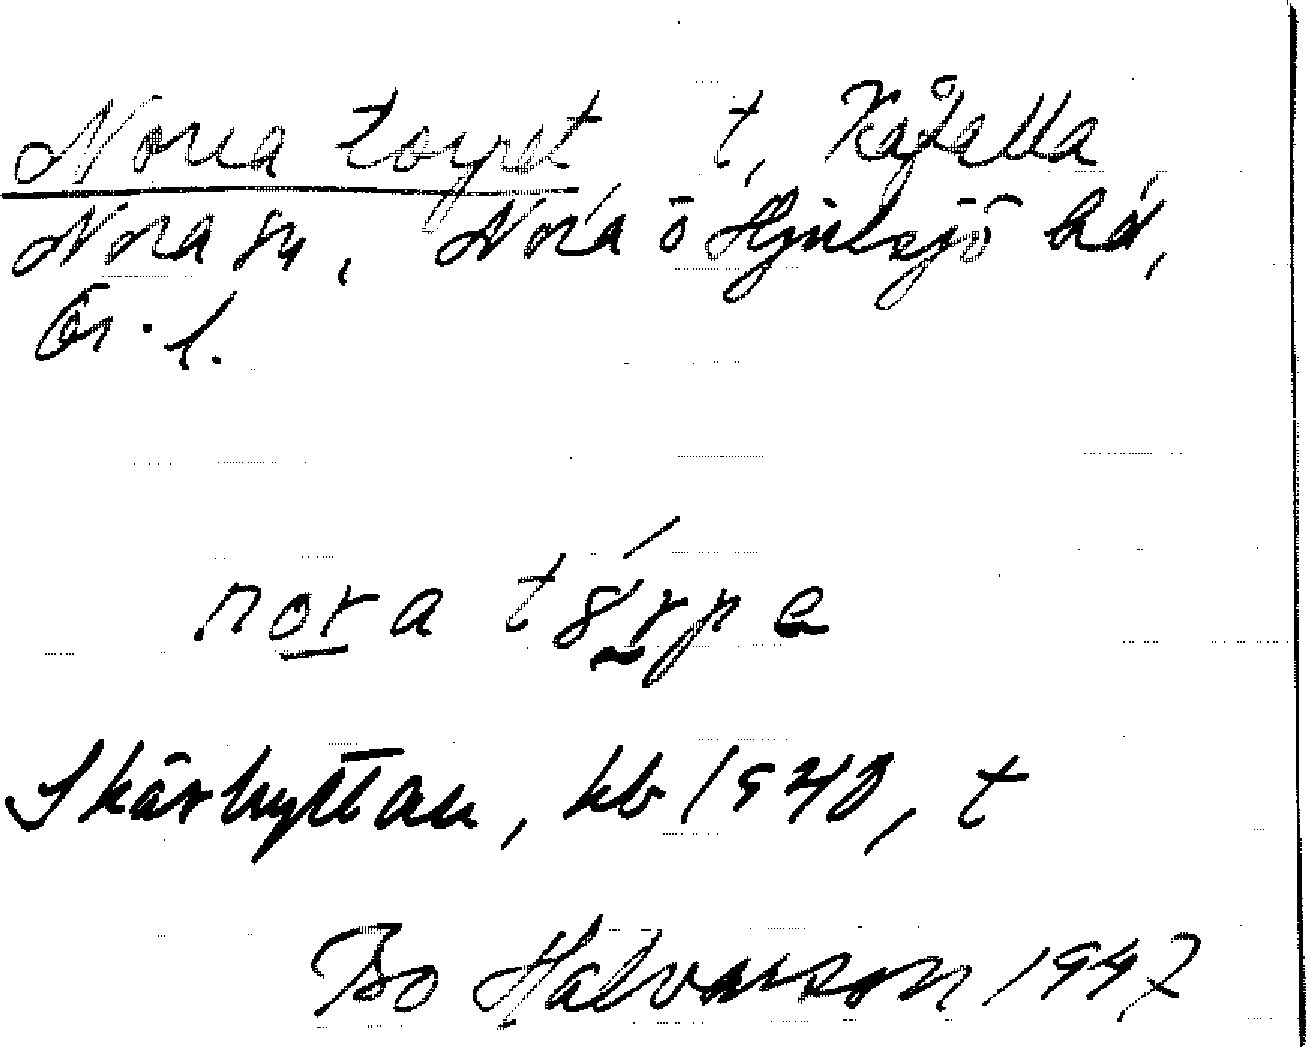 Norra torpet t, Kåfalla
Nora sn, Nora o Hjulsjö hd,
Ör. l.
nora tårpe
Skärhyttan, kb 1940, t
Bo Halvarson 1947